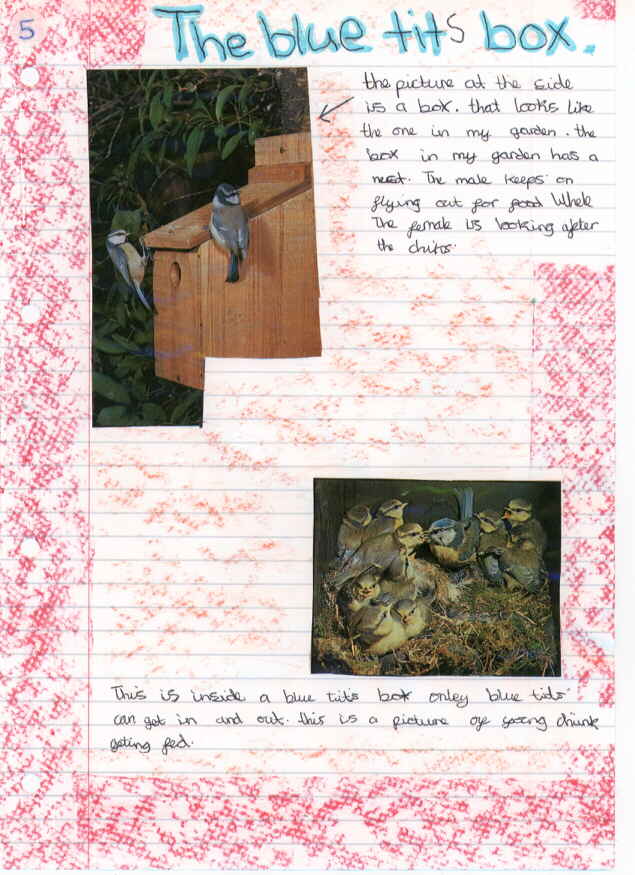 5
The blue tits box.
the picture at the side
is a box. that looks like
the one in my garden. the
box in my garden has a
nest. The male keeps on
flying out for food While
The female is looking after
the chiks.
This is inside a blue tits box onley blue tids
can get in and out. this is a picture of young
geting fed.